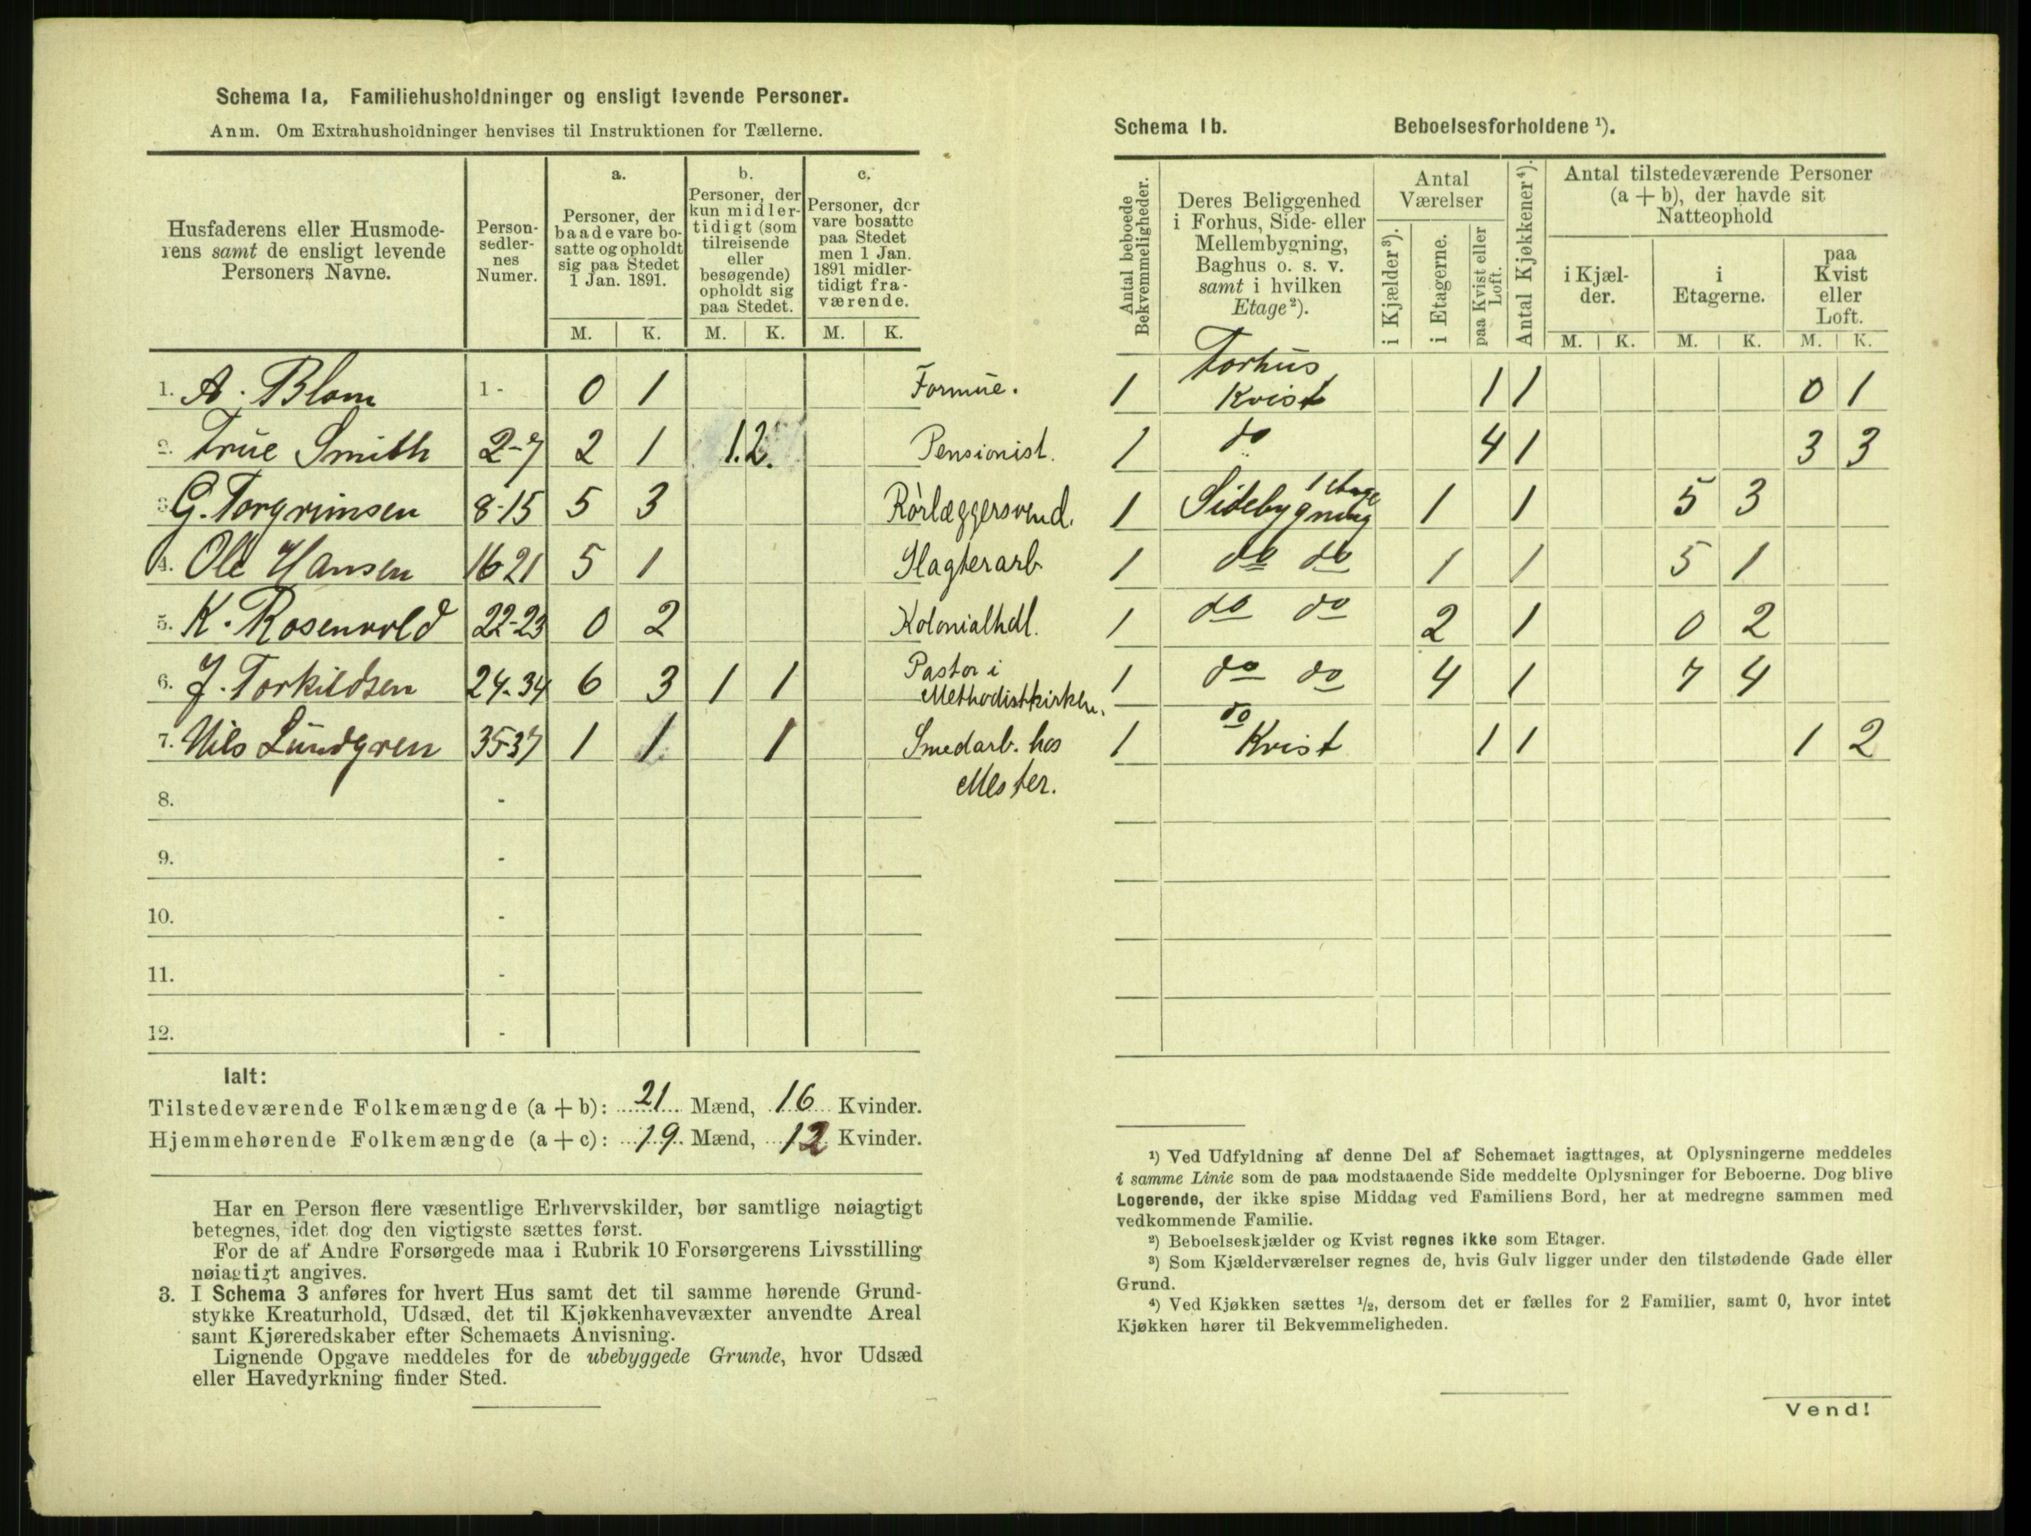 Schema 1a, Familiehusholdninger og ensligt levende Personer.
Anm. Om Extrahusholdninger henvises til Instruktionen for Tællerne.
Husfaderens eller Husmoderens samt de ensligt levende Personers Navne.
Personsedlernes Numer.
a. Personer, der baade vare bosatte og opholdt sig paa Stedet 1 Jan. 1891.
b. Personer, der kun midlertidigt (som tilreisende eller besøgende) opholdt sig paa Stedet.
c. Personer, der vare bosatte paa Stedet men 1 Jan. 1891 midlertidigt fraværende.
M. K. M. K. M. K.
1. A. Blom 1 - 0 1 Formue.
2. True Smith 2-7 2 1 1. 2. Pensionist.
3. G. Torgrimsen 8-15 5 3 Rörlæggersvend.
4. Ole Hansen 16-21 5 1 Slagterarb
5. K. Rosenvold 22-23 0 2 Kolonialhdl.
6. J. Torkildsen 24-34 6 3 1 1 Pastor i Methodistkirken.
7. Nils Lundgren 35-37 1 1 1 Smedarb. hos Mester.
8. -
9. -
10. -
11. -
12. -
Ialt:
Tilstedeværende Folkemængde (a + b): 21 Mænd, 16 Kvinder.
Hjemmehørende Folkemængde (a + c): 19 Mænd, 12 Kvinder.
Har en Person flere væsentlige Erhvervskilder, bør samtlige nøiagtigt
betegnes, idet dog den vigtigste sættes først.
For de af Andre Forsørgede maa i Rubrik 10 Forsørgerens Livsstilling
nøiagtigt angives.
3. I Schema 3 anføres for hvert Hus samt det til samme hørende Grund-
stykke Kreaturhold, Udsæd, det til Kjøkkenhavevæxter anvendte Areal
samt Kjøreredskaber efter Schemaets Anvisning.
Lignende Opgave meddeles for de ubebyggede Grunde, hvor Udsæd
eller Havedyrkning finder Sted.
Schema 1b. Beboelsesforholdene ¹).
Antal beboede Bekvemmeligheder.
Deres Beliggenhed i Forhus, Side- eller Mellembygning, Baghus o. s. v. samt i hvilken Etage²).
Antal Værelser
i Kjælder³).
i Etagerne.
paa Kvist eller Loft.
Antal Kjøkkener⁴).
Antal tilstedeværende Personer (a + b), der havde sit Natteophold
i Kjælder.
i Etagerne.
paa Kvist eller Loft.
M. K. M. K. M. K.
1 Forhus Kvist 1 1 0 1
1 do 4 1 3 3
1 Sidebygning 1 Etage 1 1 5 3
1 do do 1 1 5 1
1 do do 2 1 0 2
1 do do 4 1 7 4
1 do Kvist 1 1 1 2
¹) Ved Udfyldning af denne Del af Schemaet iagttages, at Oplysningerne meddeles
i samme Linie som de paa modstaaende Side meddelte Oplysninger for Beboerne. Dog blive
Logerende, der ikke spise Middag ved Familiens Bord, her at medregne sammen med
vedkommende Familie.
²) Beboelseskjælder og Kvist regnes ikke som Etager.
³) Som Kjælderværelser regnes de, hvis Gulv ligger under den tilstødende Gade eller
Grund.
⁴) Ved Kjøkken sættes ½, dersom det er fælles for 2 Familier, samt 0, hvor intet
Kjøkken hører til Bekvemmeligheden.
Vend!